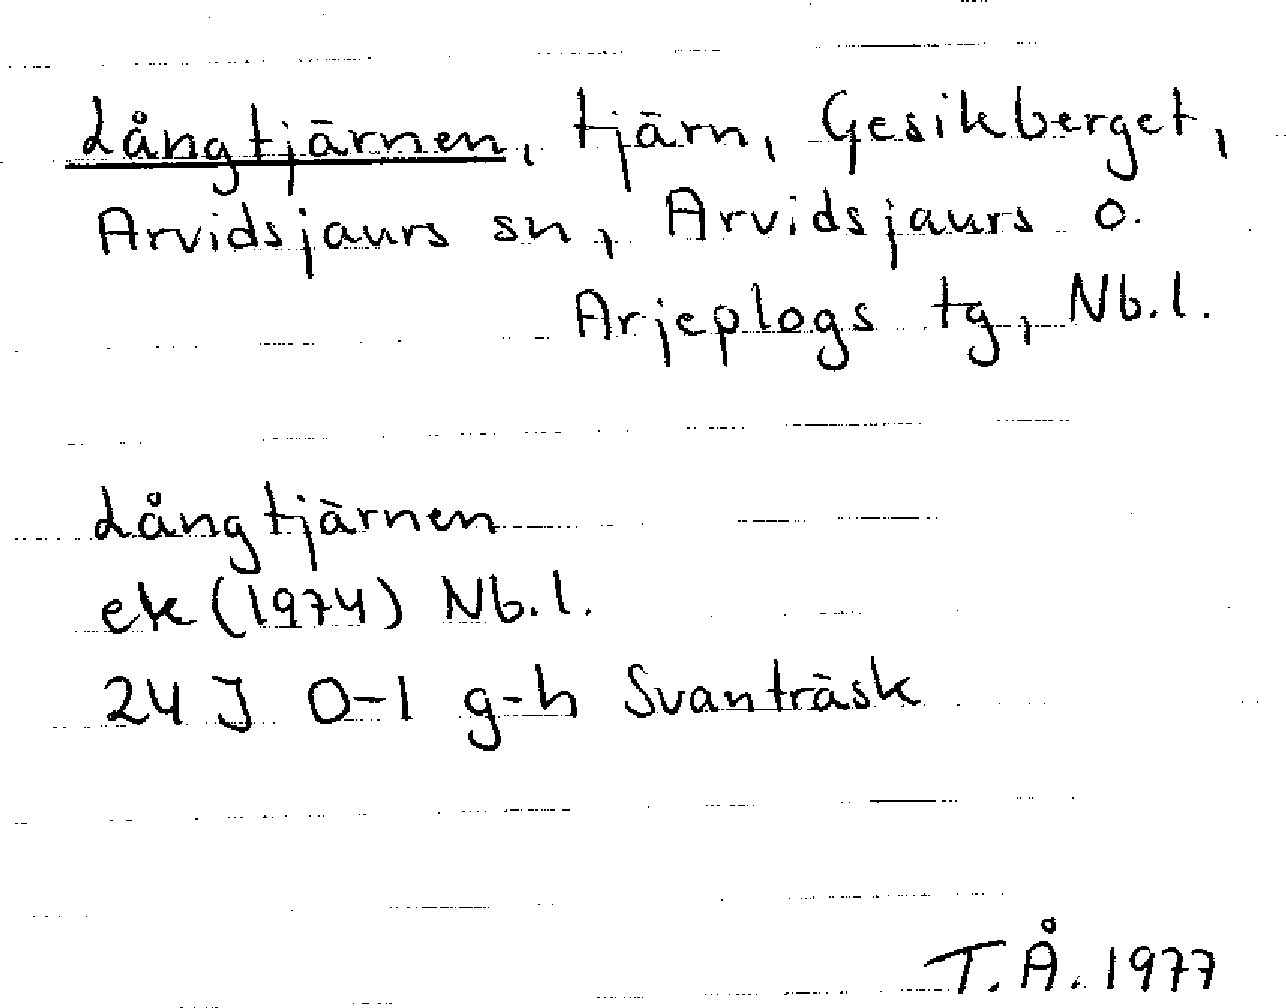 Långtjärnen, tjärn, Gesikberget,
Arvidsjaurs sn, Arvidsjaurs o.
Arjeplogs tg, Nb.l.
Långtjärnen
ek (1974) Nb.l.
24 J 0-1 g-h Svanträsk
T.Å. 1977